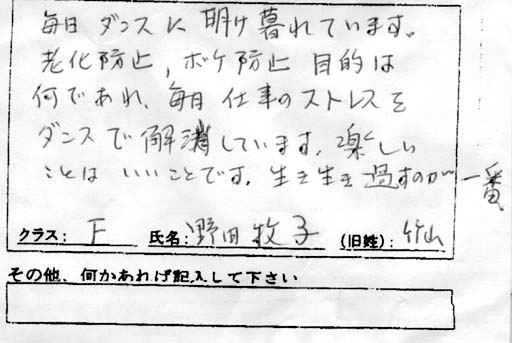 毎日 ダンスに 明け暮れています。
老化防止, ボケ防止 目的は
何であれ、毎日 仕事のストレスを
ダンスで解消しています。楽しい
ことは いいことです。生き生き過すのが一番
クラス: F 氏名: 野田牧子 (旧姓): 竹山
その他、何かあれば記入して下さい